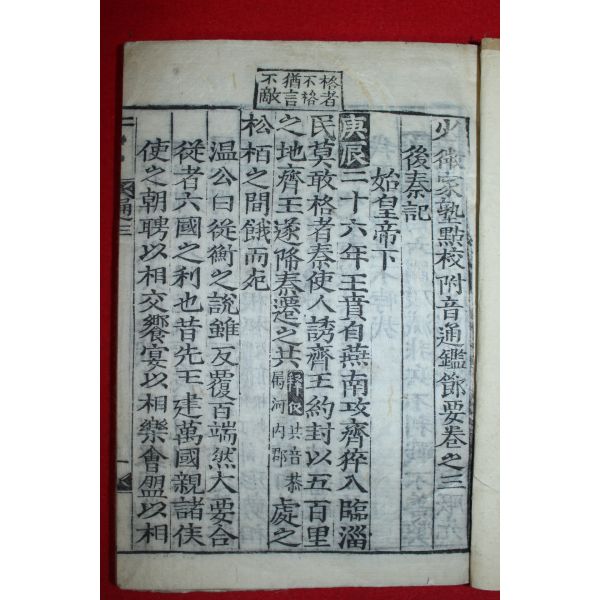 格者
不格
猶言
不敵
少微家塾點校附音通鑑節要卷之三
後秦記
始皇帝下
庚辰二十六年王賁自燕南攻齊猝入臨淄
民莫敢格者秦使人誘齊王約封以五百里
之地齊王遂降秦遷之共釋仪共音恭屬河內郡處之
松栢之間餓而死
温公曰從衡之說雖反覆百端然大要合
從者六國之利也昔先王建萬國親諸侯
使之朝聘以相交饗宴以相樂會盟以相
通三